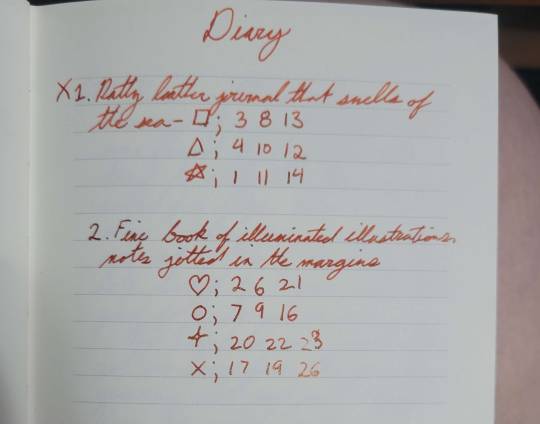 Diary
X1. Ratty leather journal that smells of
the sea - □; 3 8 13
△; 4 10 12
☆; 1 11 14
2. Fine book of illuminated illustrations,
notes jotted in the margins
♡; 2 6 21
○; 7 9 16
✦; 20 22 23
×; 17 19 26